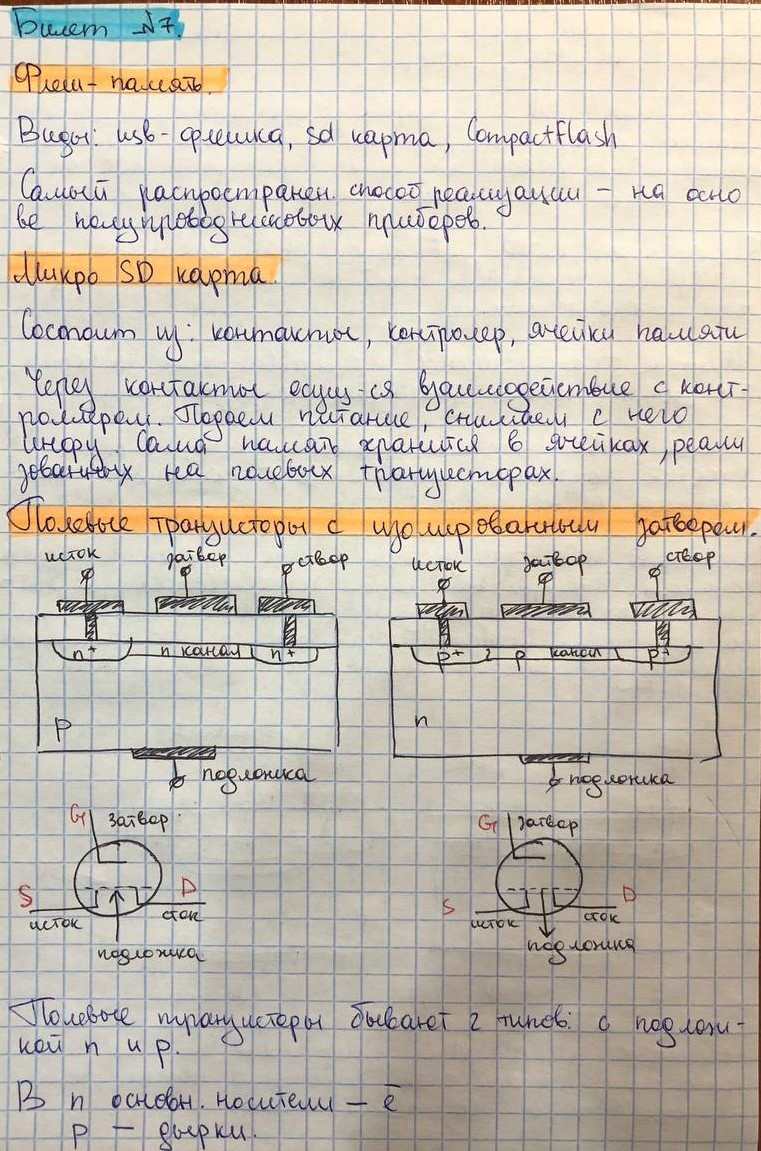 Билет №7.
Флеш-память.
Виды: usb-флешка, sd карта, CompactFlash
Самый распространен. способ реализации – на осно
ве полупроводниковых приборов.
Микро SD карта.
Состоит из: контакты, контролер, ячейки памяти
Через контакты осущ-ся взаимодействие с конт-
роллером. Подаем питание, снимаем с него
инфу. Сама память хранится в ячейках, реали
зованных на полевых транзисторах.
Полевые транзисторы с изолированным затвором.
исток затвор створ исток затвор створ
n+ n канал n+ p+ p канал p+
p n
подложка подложка
G затвор G затвор
S D S D
исток сток исток сток
подложка подложка
Полевые транзисторы бывают 2 типов: с подлож-
кой n и p.
В n основн. носители – ē
p – дырки.